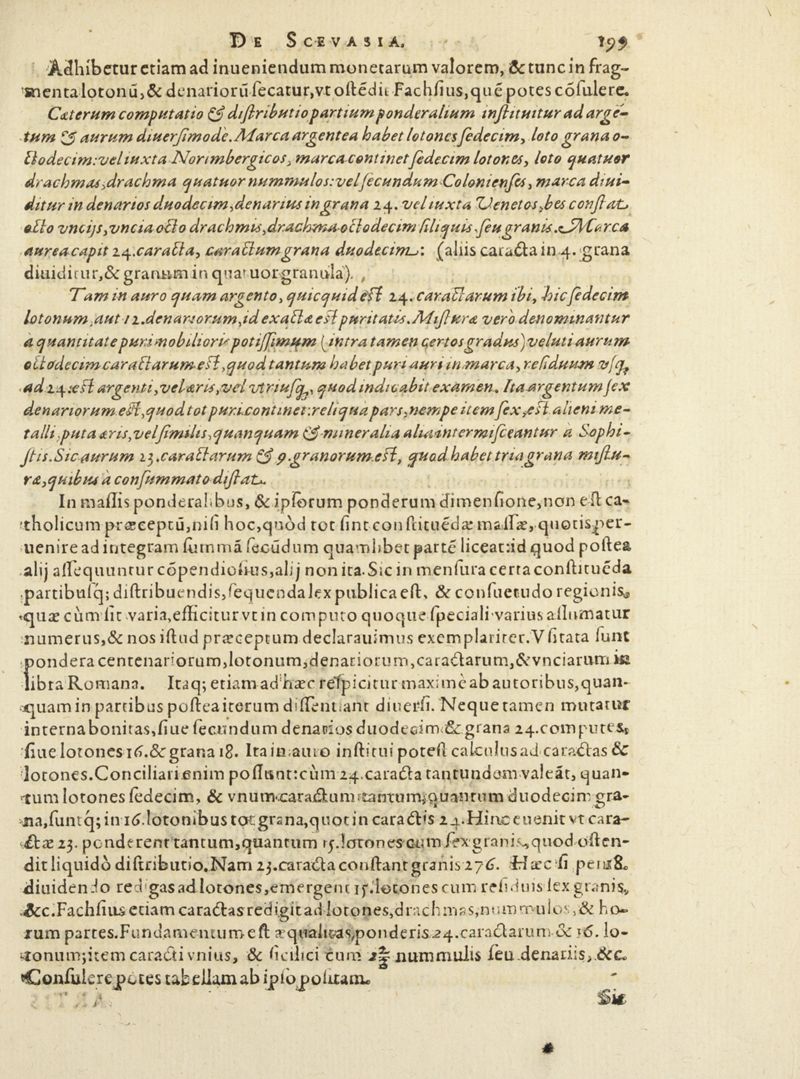 DE SCEVASIA. 199
Adhibetur etiam ad inueniendum monetarum valorem, & tunc in frag-
menta lotonū, & denariorū secatur, vt ostēdit Fachsius, quē potes cōsulere.
Cæterum computatio & distributio partium ponderalium instituitur ad argē-
tum & aurum diuersimode. Marca argentea habet lotones sedecim, loto grana o-
ctodecim: vel iuxta Norimbergicos, marca continet sedecim lotones, loto quatuor
drachmas, drachma quatuor nummulos: vel secundum Colonienses, marca diui-
ditur in denarios duodecim, denarius in grana 24. vel iuxta Venetos, bes constat
octo vncijs, vncia octo drachmis, drachma octodecim siliquis seu granis. Marca
aurea capit 24. caracta, caractum grana duodecim: (aliis caracta in 4. grana
diuiditur, & granum in quatuor granula).
Tam in auro quam argento, quicquid est 24. caractarum ibi, hic sedecim
lotonum, aut 12. denariorum, id exactæ est puritatis. Misturæ vero denominantur
a quantitate puri nobilioris potissimum (intra tamen certos gradus) veluti aurum
octodecim caractarum est, quod tantum habet puri auri in marca, residuum vsq;
ad 24. est argenti, vel æris, vel vtriusq;, quod indicabit examen. Ita argentum sex
denariorum est, quod tot puri continet: reliqua pars, nempe item sex, est alieni me-
talli, puta æris, vel similis, quanquam & mineralia alia intermisceantur a Sophi-
stis. Sic aurum 23. caractarum & 9. granorum est, quod habet tria grana mistu-
ræ, quibus a consummato distat.
In massis ponderalibus, & ipsorum ponderum dimensione, non est ca-
tholicum præceptū, nisi hoc, quòd tot sint constituēdæ massæ, quotis per-
uenire ad integram summā secūdum quamlibet partē liceat: id quod postea
alij assequuntur cōpendiosius, alij non ita. Sic in mensura certa constituēda
partibusq; distribuendis, sequenda lex publica est, & consuetudo regionis,
quæ cùm sit varia, efficitur vt in computo quoque speciali varius assumatur
numerus, & nos istud præceptum declarauimus exemplariter. Vsitata sunt
pondera centenariorum, lotonum, denariorum, caractarum, & vnciarum in
libra Romana. Itaq; etiam ad hæc respicitur maximè ab autoribus, quan-
quam in partibus postea iterum dissentiant diuersi. Neque tamen mutatur
interna bonitas, siue secundum denarios duodecim & grana 24. computes,
siue lotones 16. & grana 18. Ita in auro institui potest calculus ad caractas &
lotones. Conciliari enim possunt: cùm 24. caracta tantundem valeāt, quan-
tum lotones sedecim, & vnum caractum tantum, quantum duodecim gra-
na, suntq; in 16. lotonibus tot grana, quot in caractis 24. Hinc euenit vt cara-
ctæ 23. ponderent tantum, quantum 15. lotones cum sex granis, quod osten-
dit liquidò distributio. Nam 23. caracta constant granis 276. Hæc si per 18.
diuidendo redigas ad lotones, emergent 15. lotones cum residuis sex granis,
&c. Fachsius etiam caractas redigit ad lotones, drachmas, nummulos, & ho-
rum partes. Fundamentum est æqualitas ponderis 24. caractarum & 16. lo-
tonum; item caracti vnius, & sicilici cum 2⅔ nummulis seu denariis, &c.
Consulere potes tabellam ab ipso positam.
Sit